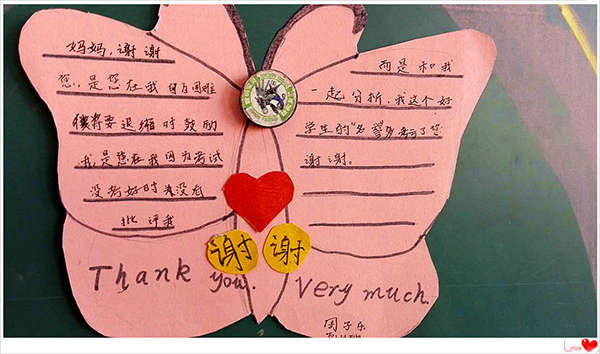 妈妈,谢谢
您,是您在我因为困难
将要退缩时鼓励
我,是您在我因为考试
没考好时并没有
批评我
而是和我
一起分析,我这个好
学生的
谢谢。
谢 谢
Thank you. Very much.
周子乐
Love